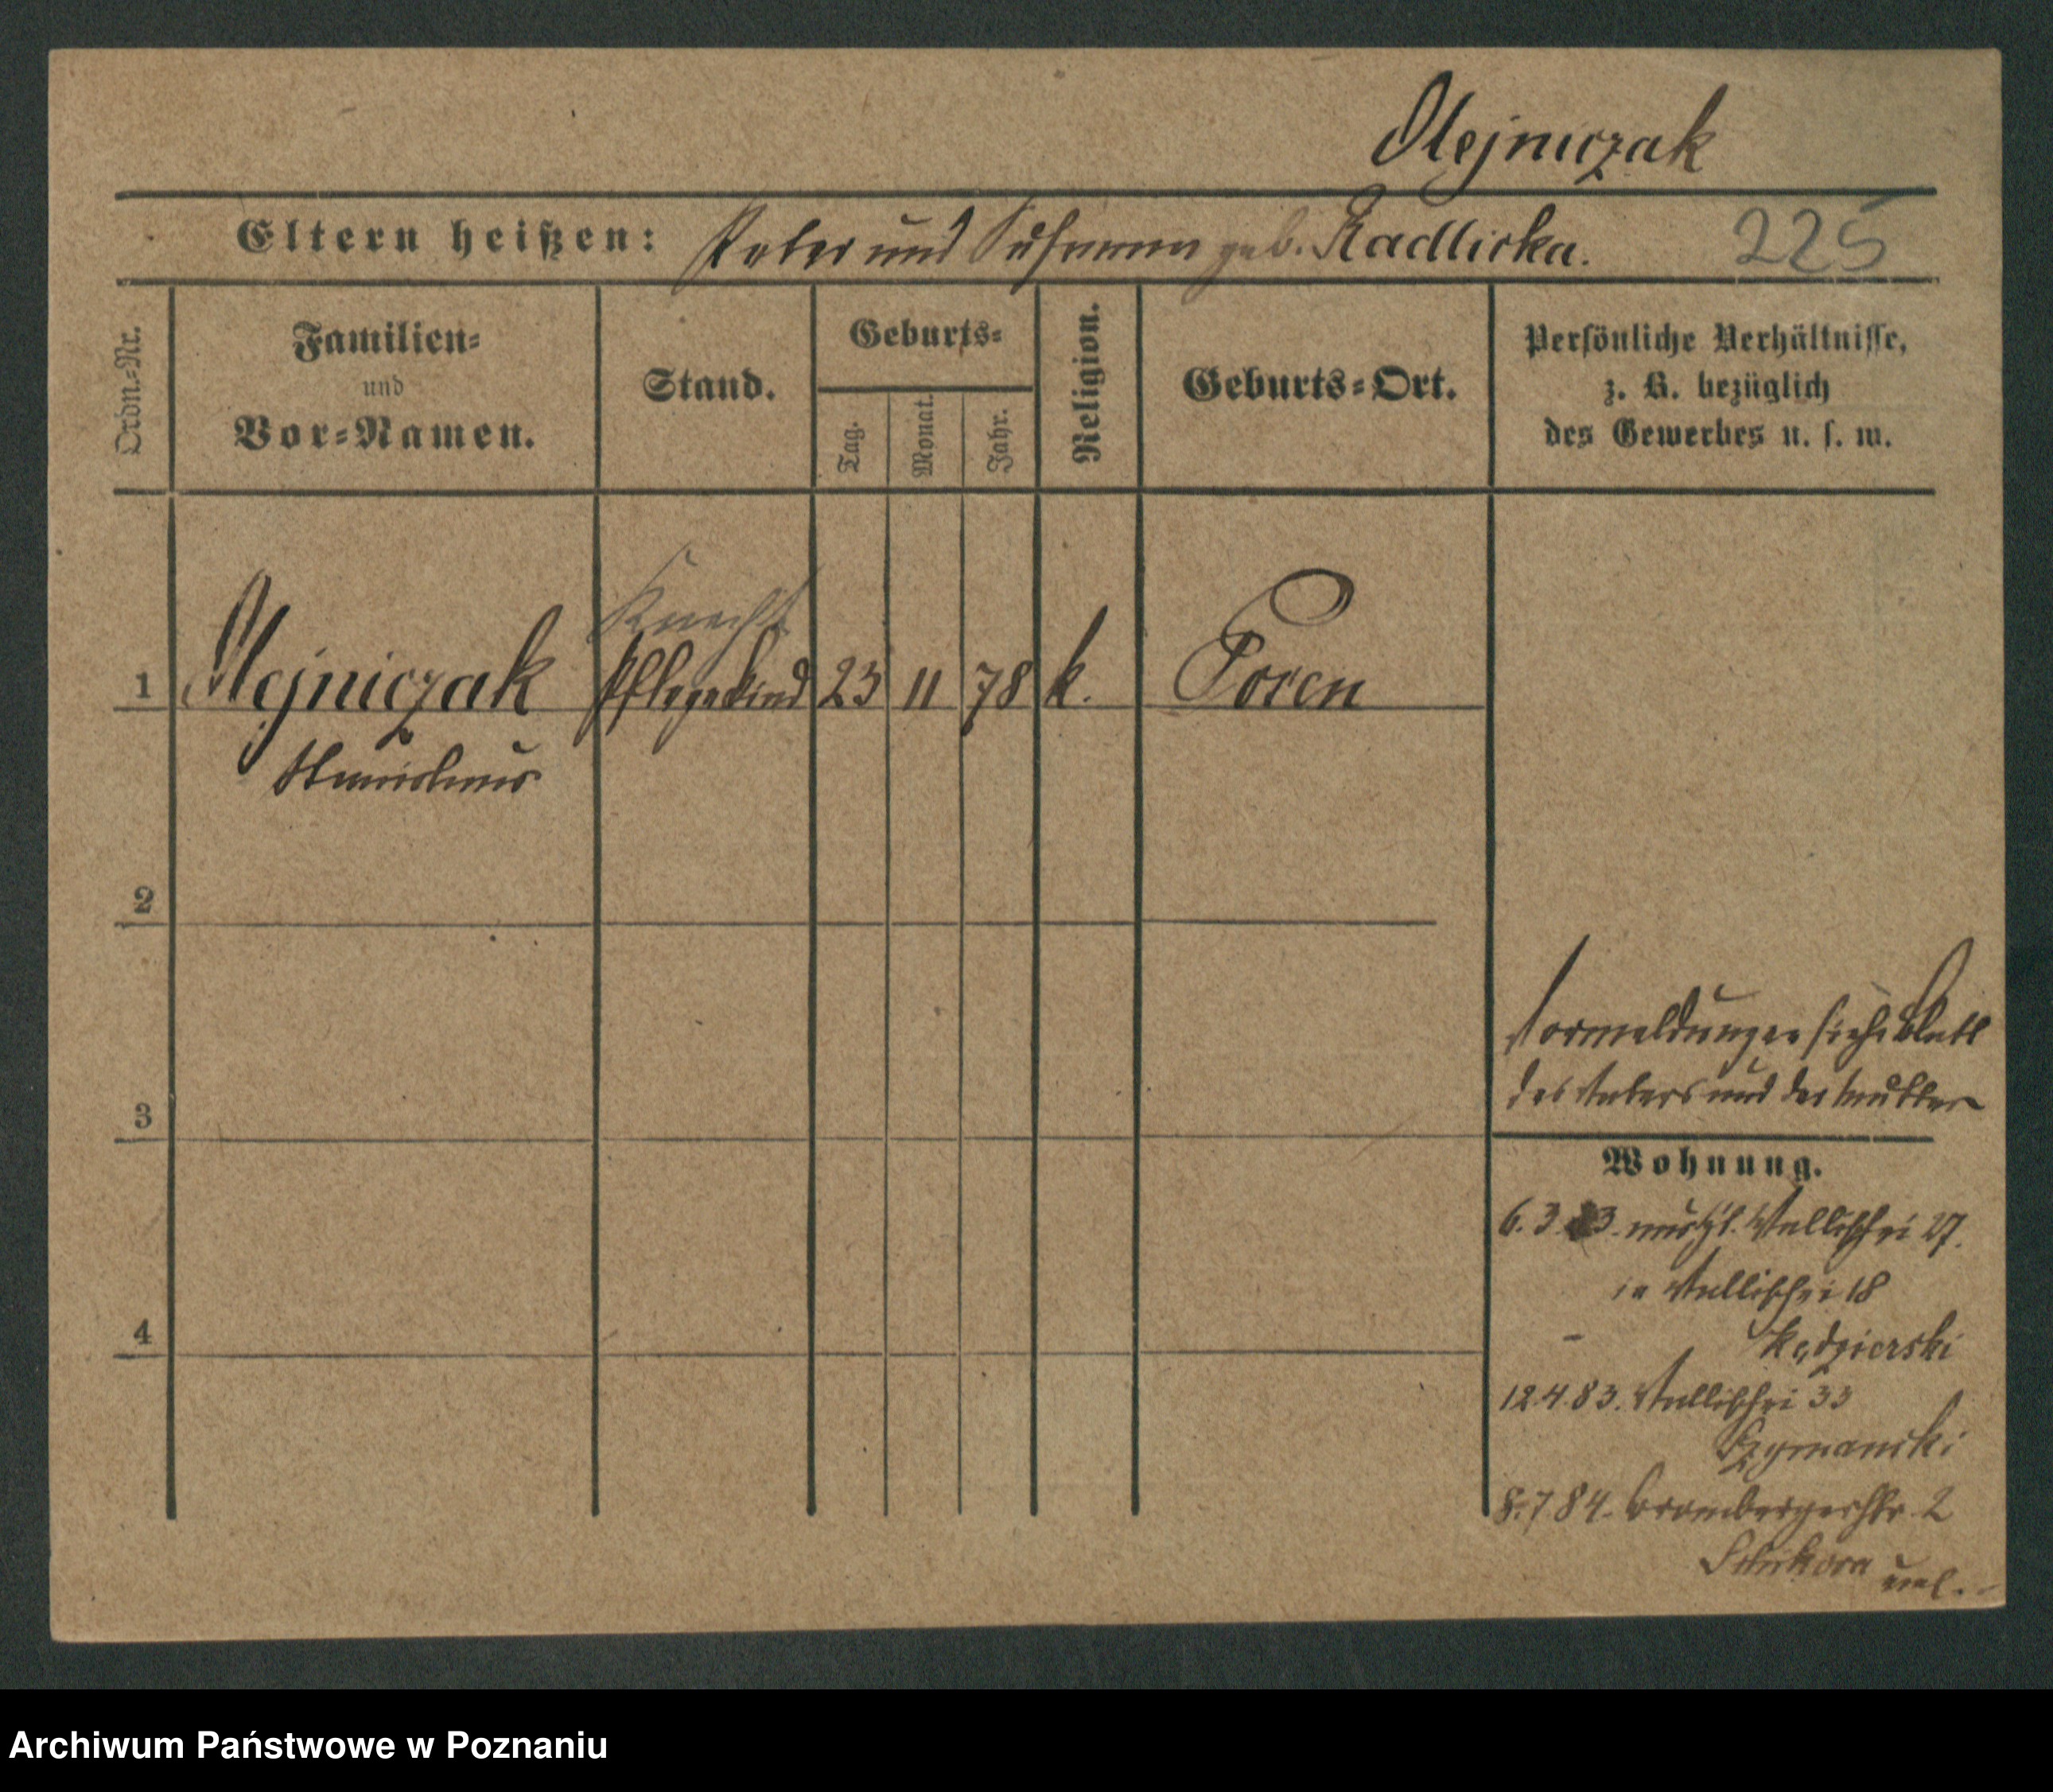 Olejniczak
Eltern heißen: Peter und Susanna geb. Radlicka. 225
Ordn.-Nr.
Familien-
und
Vor-Namen.
Stand.
Geburts-
Tag.
Monat.
Jahr.
Religion.
Geburts-Ort.
Persönliche Verhältnisse,
z. B. bezüglich
des Gewerbes u. s. w.
Knecht
1 Olejniczak Pflegekind 23 11 78 k. Posen
Stanislaus
2
3
4
Vormeldungen siehe Blatt
des Vaters und der Mutter
Wohnung.
6. 3. 83. Wallischei 27.
Wallischei 18
Kędzierski
12.4.83. Wallischei 33
Szymanski
8.7 84. Brombergerstr. 2
Sikora
Archiwum Państwowe w Poznaniu